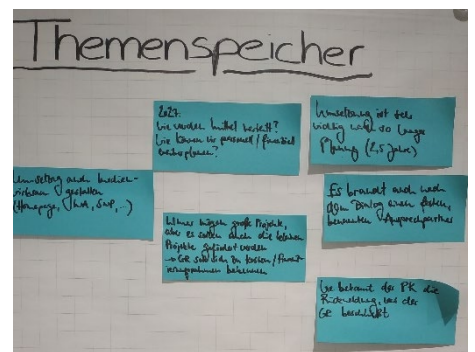 Themenspeicher
2027:
Wie werden Mittel verteilt?
Wie können wir personell/finanziell
weiterplanen?
Umsetzung ist sehr
wichtig nach so langer
Planung (2,5 Jahre)
Umsetzung auch medien-
wirksam gestalten
(Homepage, Insta, SWP, ...)
Es braucht auch nach
dem Dialog einen festen,
benannten Ansprechpartner
große Projekte,
aber es sollen auch die kleinen
Projekte gefördert werden
GR soll sich zu
bekennen
Wie bekommt der PK die
Rückmeldung, was der
GR beschließt